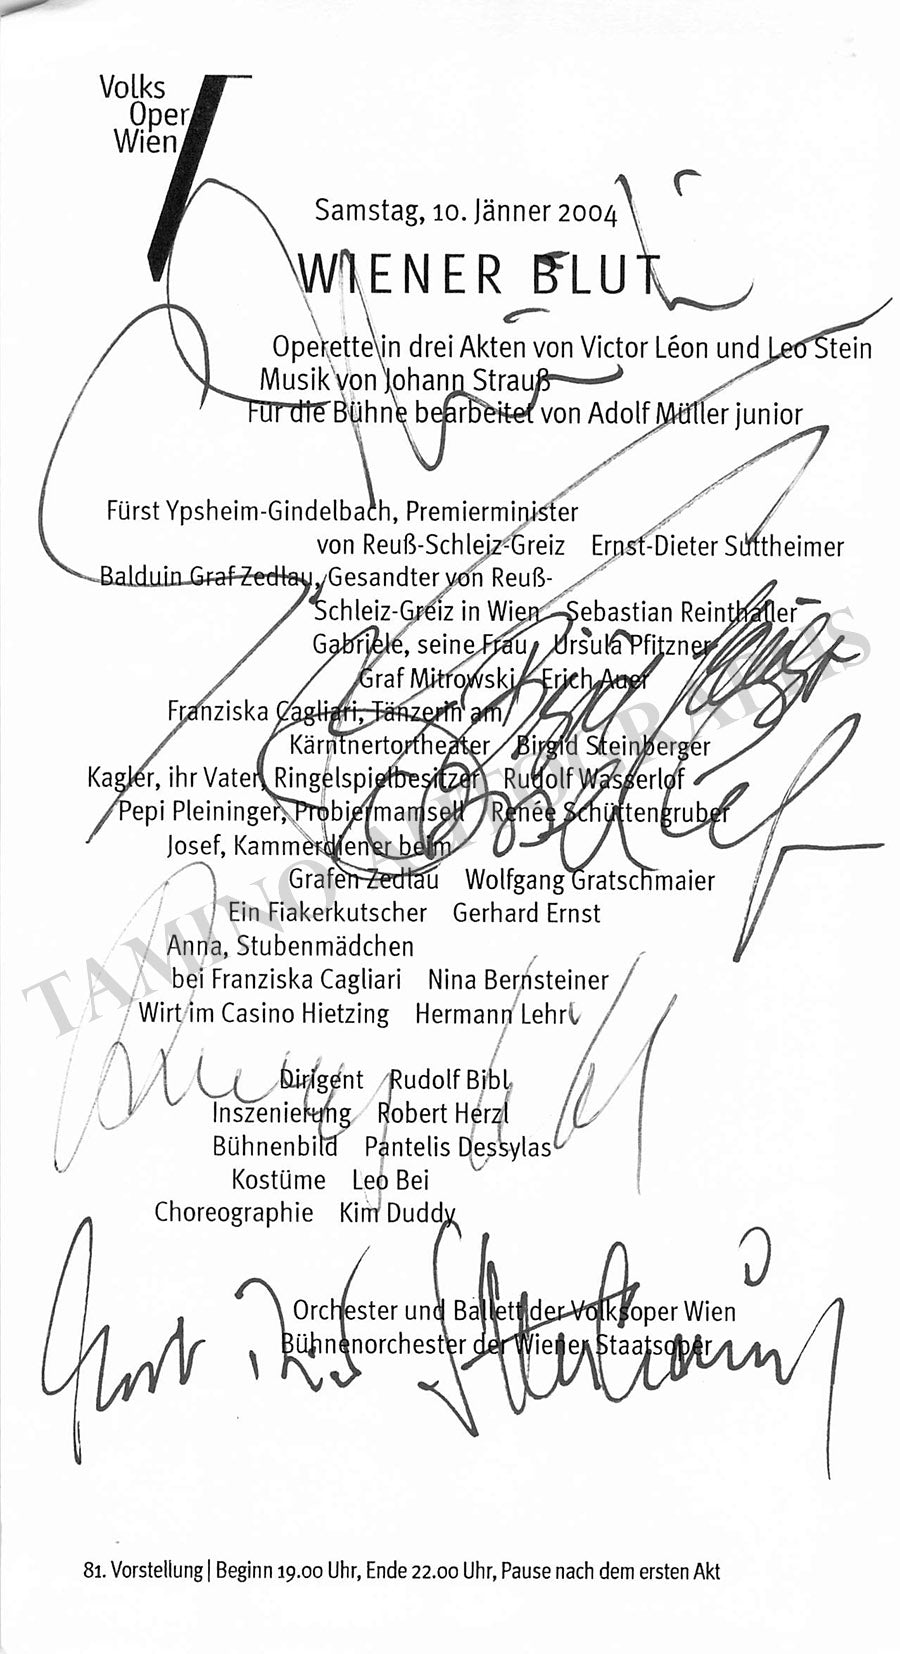 Volks
Oper
Wien
Samstag, 10. Jänner 2004
WIENER BLUT
Operette in drei Akten von Victor Léon und Leo Stein
Musik von Johann Strauß
Für die Bühne bearbeitet von Adolf Müller junior
Fürst Ypsheim-Gindelbach, Premierminister
von Reuß-Schleiz-Greiz Ernst-Dieter Suttheimer
Balduin Graf Zedlau, Gesandter von Reuß-
Schleiz-Greiz in Wien Sebastian Reinthaller
Gabriele, seine Frau Ursula Pfitzner
Graf Mitrowski Erich Auer
Franziska Cagliari, Tänzerin am
Kärntnertortheater Birgid Steinberger
Kagler, ihr Vater, Ringelspielbesitzer Rudolf Wasserlof
Pepi Pleininger, Probiermamsell Renée Schüttengruber
Josef, Kammerdiener beim
Grafen Zedlau Wolfgang Gratschmaier
Ein Fiakerkutscher Gerhard Ernst
Anna, Stubenmädchen
bei Franziska Cagliari Nina Bernsteiner
Wirt im Casino Hietzing Hermann Lehr
Dirigent Rudolf Bibl
Inszenierung Robert Herzl
Bühnenbild Pantelis Dessylas
Kostüme Leo Bei
Choreographie Kim Duddy
Orchester und Ballett der Volksoper Wien
Bühnenorchester der Wiener Staatsoper
81. Vorstellung | Beginn 19.00 Uhr, Ende 22.00 Uhr, Pause nach dem ersten Akt
TAMINO AUTOGRAPHS